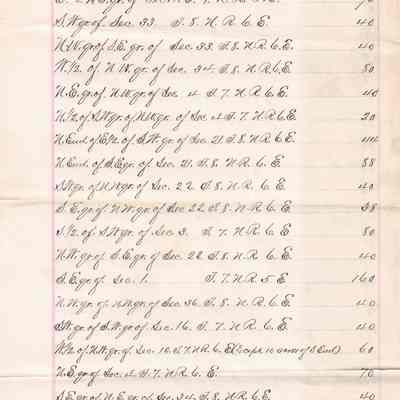 S.W.qr of Sec. 33. T. 8. N. R. 6. E 40
N.W.qr of S.E.qr. of Sec. 33. T. 8. N. R. 6. E. 40
W.1/2. of N.W.qr. of Sec. 34. T. 8. N. R. 6. E 80
N.E.qr of N.W.qr of Sec. 4. T. 7. N. R. 6. E. 40
N.1/2 of S.W.qr of N.W.qr of Sec 4 T. 7. N. R. 6. E. 20
N. End. of E.1/2. of S.W.qr. of Sec. 21. T. 8. N. R. 6. E. 44
N. End. of S.E.qr. of Sec. 21. T. 8. N. R. 6. E. 88
S.W.qr. of N.W.qr. of Sec. 22. T. 8. N. R. 6. E. 40
S.E.qr of N.W.qr of Sec 22. T. 8. N. R. 6. E. 38
S.1/2. of S.W.qr. of Sec. 3. T. 7. N. R. 6. E 80
N.W.qr of S.E.qr. of Sec. 22. T. 8. N. R. 6. E 40
S.E.qr of Sec. 1. T. 7. N. R. 5. E 160
N.W.qr. of N.W.qr of Sec 36. T. 8. N. R. 6. E. 40
S.W.qr of S.W.qr of Sec. 16. T. 7. N. R. 6. E. 40
W.1/2. of N.W.qr. of Sec. 10. T. 7. N. R. 6. E. (Except. of S. End). 60
N.E.qr of Sec. 4. T. 7. N. R. 6. E. 70
S.E.qr of N.E.qr. of Sec. 34. T. 8. N. R. 6. E. 40